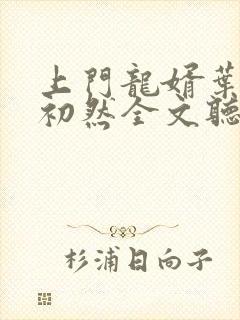 上門龍婿葉
初然全文聽
杉浦日向子